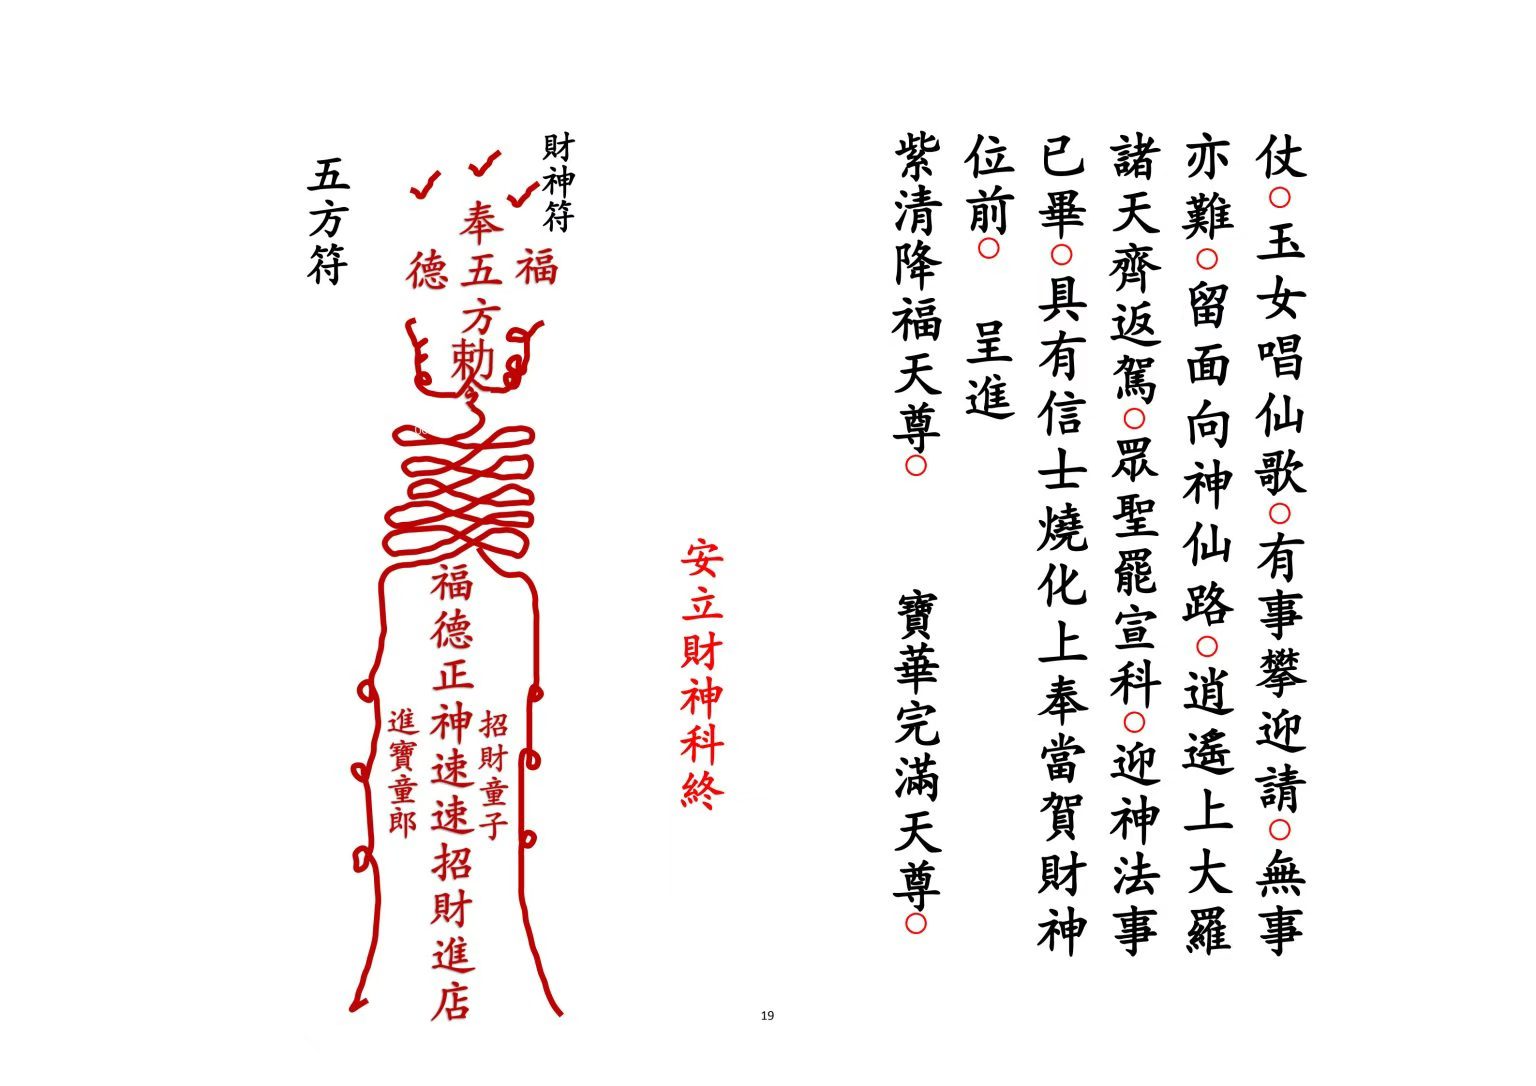 仗○玉女唱仙歌○有事攀迎請○無事
亦難○留面向神仙路○逍遙上大羅
諸天齊返駕○眾聖罷宣科○迎神法事
已畢○具有信士燒化上奉當賀財神
位前○　呈進
紫清降福天尊○　寶華完滿天尊○
安立財神科終
財神符
奉五方勅
福
德
福德正神速速招財進店
招財童子
進寶童郎
五方符
19